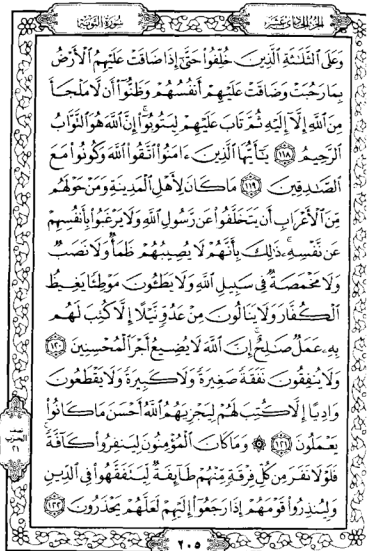 الجزء الحادي عشر
سورة التوبة
وَعَلَى ٱلثَّلَٰثَةِ ٱلَّذِينَ خُلِّفُوا۟ حَتَّىٰٓ إِذَا ضَاقَتْ عَلَيْهِمُ ٱلْأَرْضُ
بِمَا رَحُبَتْ وَضَاقَتْ عَلَيْهِمْ أَنفُسُهُمْ وَظَنُّوٓا۟ أَن لَّا مَلْجَأَ
مِنَ ٱللَّهِ إِلَّآ إِلَيْهِ ثُمَّ تَابَ عَلَيْهِمْ لِيَتُوبُوٓا۟ۚ إِنَّ ٱللَّهَ هُوَ ٱلتَّوَّابُ
ٱلرَّحِيمُ ١١٨ يَٰٓأَيُّهَا ٱلَّذِينَ ءَامَنُوا۟ ٱتَّقُوا۟ ٱللَّهَ وَكُونُوا۟ مَعَ
ٱلصَّٰدِقِينَ ١١٩ مَا كَانَ لِأَهْلِ ٱلْمَدِينَةِ وَمَنْ حَوْلَهُم
مِّنَ ٱلْأَعْرَابِ أَن يَتَخَلَّفُوا۟ عَن رَّسُولِ ٱللَّهِ وَلَا يَرْغَبُوا۟ بِأَنفُسِهِمْ
عَن نَّفْسِهِۦۚ ذَٰلِكَ بِأَنَّهُمْ لَا يُصِيبُهُمْ ظَمَأٌ وَلَا نَصَبٌ
وَلَا مَخْمَصَةٌ فِى سَبِيلِ ٱللَّهِ وَلَا يَطَـُٔونَ مَوْطِئًا يَغِيظُ
ٱلْكُفَّارَ وَلَا يَنَالُونَ مِنْ عَدُوٍّ نَّيْلًا إِلَّا كُتِبَ لَهُم
بِهِۦ عَمَلٌ صَٰلِحٌۚ إِنَّ ٱللَّهَ لَا يُضِيعُ أَجْرَ ٱلْمُحْسِنِينَ ١٢٠
وَلَا يُنفِقُونَ نَفَقَةً صَغِيرَةً وَلَا كَبِيرَةً وَلَا يَقْطَعُونَ
وَادِيًا إِلَّا كُتِبَ لَهُمْ لِيَجْزِيَهُمُ ٱللَّهُ أَحْسَنَ مَا كَانُوا۟
يَعْمَلُونَ ١٢١ ۞ وَمَا كَانَ ٱلْمُؤْمِنُونَ لِيَنفِرُوا۟ كَآفَّةًۚ
فَلَوْلَا نَفَرَ مِن كُلِّ فِرْقَةٍ مِّنْهُمْ طَآئِفَةٌ لِّيَتَفَقَّهُوا۟ فِى ٱلدِّينِ
وَلِيُنذِرُوا۟ قَوْمَهُمْ إِذَا رَجَعُوٓا۟ إِلَيْهِمْ لَعَلَّهُمْ يَحْذَرُونَ ١٢٢
نصف
الحزب
٢١
٢٠٥